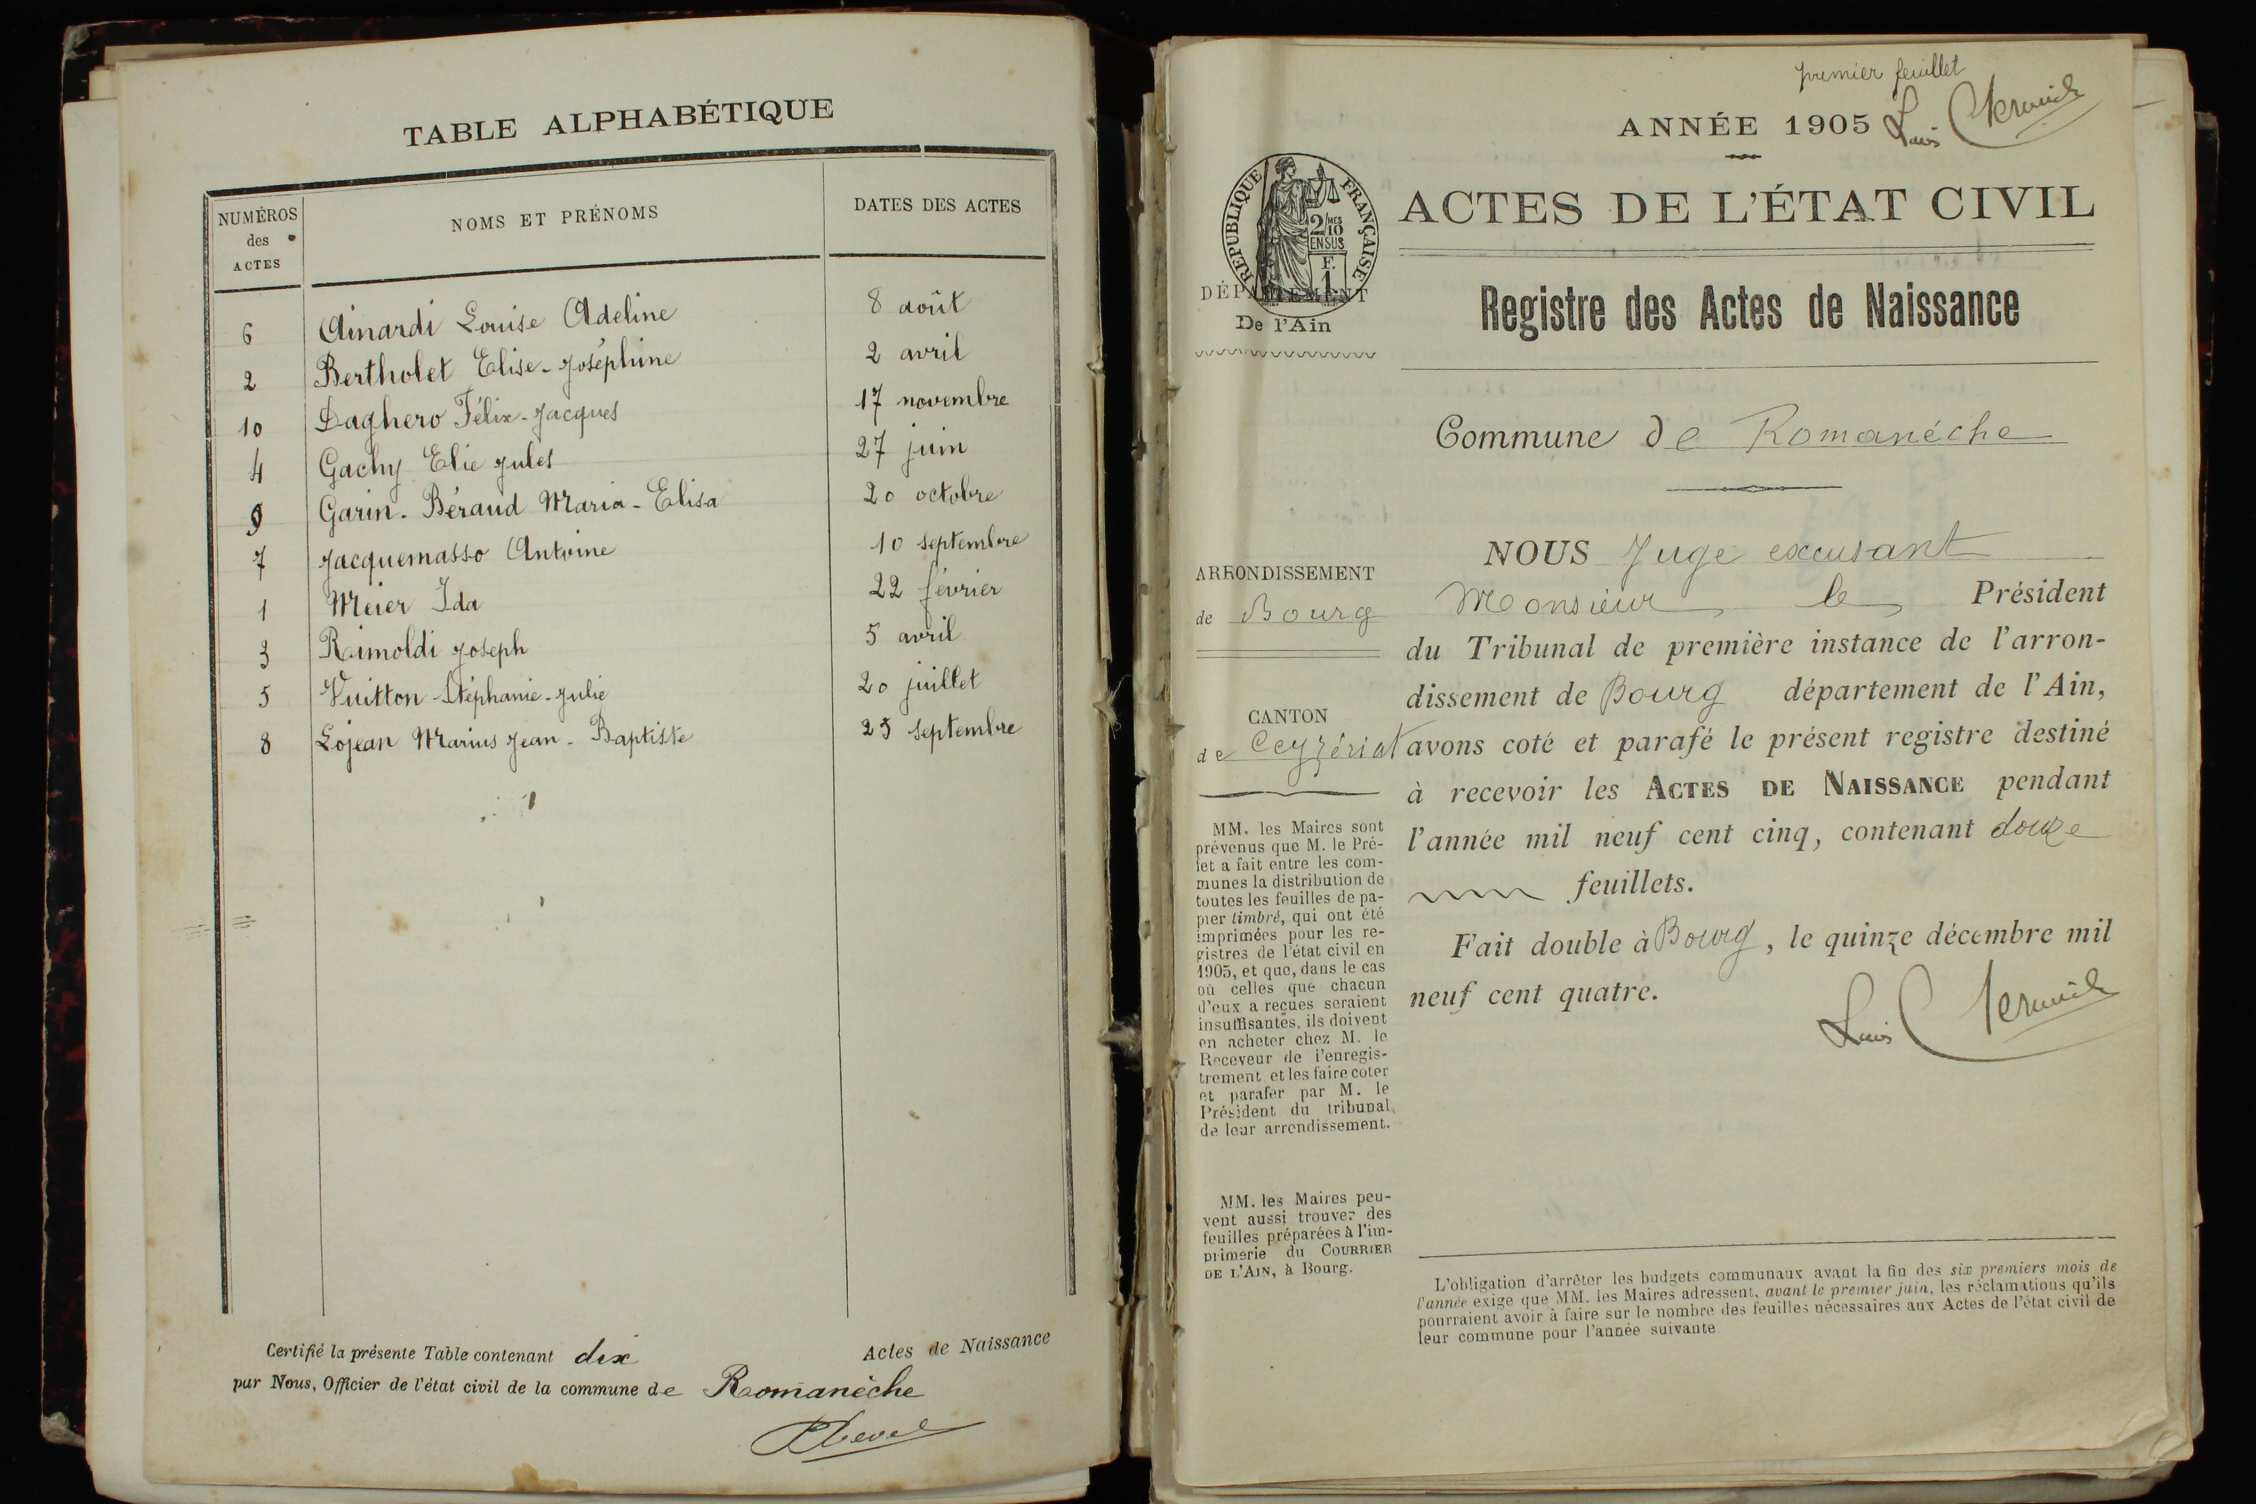 TABLE ALPHABÉTIQUE
NUMÉROS des ACTES
NOMS ET PRÉNOMS
DATES DES ACTES
6 Ainardi Louise Adeline 8 août
2 Bertholet Elise-Joséphine 2 avril
10 Daghero Félix-Jacques 17 novembre
4 Gachy Elie Jules 27 juin
9 Garin-Béraud Maria-Elisa 20 octobre
7 Jacquemasso Antoine 10 septembre
1 Meier Ida 22 février
3 Rimoldi Joseph 5 avril
5 Vuitton Stéphanie-Julie 20 juillet
8 Lojean Marius Jean-Baptiste 25 septembre
Certifié la présente Table contenant dix Actes de Naissance
par Nous, Officier de l'état civil de la commune de Romanèche
premier feuillet
ANNÉE 1905
Louis
ACTES DE L'ÉTAT CIVIL
RÉPUBLIQUE FRANÇAISE
2/10 MES
EN SUS
F.
1
DÉPARTEMENT
De l'Ain
Registre des Actes de Naissance
Commune de Romanéche
ARRONDISSEMENT
de Bourg
CANTON
de Ceyzériat
MM. les Maires sont
prévenus que M. le Pré-
fet a fait entre les com-
munes la distribution de
toutes les feuilles de pa-
pier timbré, qui ont été
imprimées pour les re-
gistres de l'état civil en
1905, et que, dans le cas
où celles que chacun
d'eux a reçues seraient
insuffisantes, ils doivent
en acheter chez M. le
Receveur de l'enregis-
trement et les faire coter
et parafer par M. le
Président du tribunal
de leur arrondissement.
MM. les Maires peu-
vent aussi trouver des
feuilles préparées à l'im-
primerie du COURRIER
DE L'AIN, à Bourg.
NOUS Juge excusant
Monsieur le Président
du Tribunal de première instance de l'arron-
dissement de Bourg département de l'Ain,
avons coté et parafé le présent registre destiné
à recevoir les ACTES DE NAISSANCE pendant
l'année mil neuf cent cinq, contenant douze
feuillets.
Fait double à Bourg, le quinze décembre mil
neuf cent quatre.
Louis
L'obligation d'arrêter les budgets communaux avant la fin des six premiers mois de
l'année exige que MM. les Maires adressent, avant le premier juin, les réclamations qu'ils
pourraient avoir à faire sur le nombre des feuilles nécessaires aux Actes de l'état civil de
leur commune pour l'année suivante